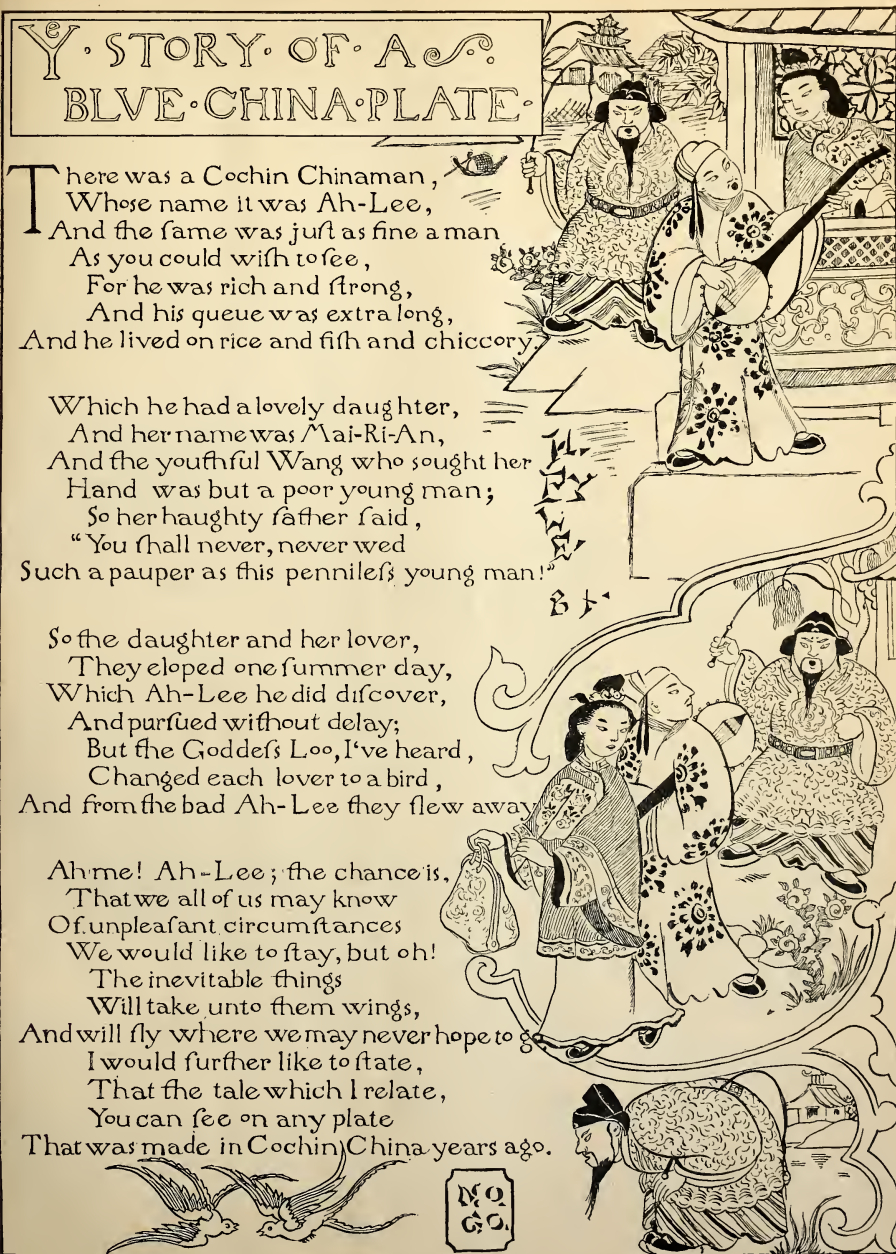 Yᵉ · STORY · OF · A
BLVE · CHINA · PLATE ·
There was a Cochin Chinaman,
Whose name it was Ah-Lee,
And the ſame was juſt as fine a man
As you could wiſh to ſee,
For he was rich and ſtrong,
And his queue was extra long,
And he lived on rice and fiſh and chiccory.
Which he had a lovely daughter,
And her name was Mai-Ri-An,
And the youthful Wang who sought her
Hand was but a poor young man;
So her haughty father ſaid,
“You ſhall never, never wed
Such a pauper as this pennileſs young man!”
So the daughter and her lover,
They eloped one ſummer day,
Which Ah-Lee he did diſcover,
And purſued without delay;
But the Goddeſs Loo, I've heard,
Changed each lover to a bird,
And from the bad Ah-Lee they flew away
Ah me! Ah-Lee; the chance is,
That we all of us may know
Of unpleaſant circumſtances
We would like to ſtay, but oh!
The inevitable things
Will take unto them wings,
And will fly where we may never hope to go.
I would further like to ſtate,
That the tale which I relate,
You can ſee on any plate
That was made in Cochin China years ago.
NO.
GO.